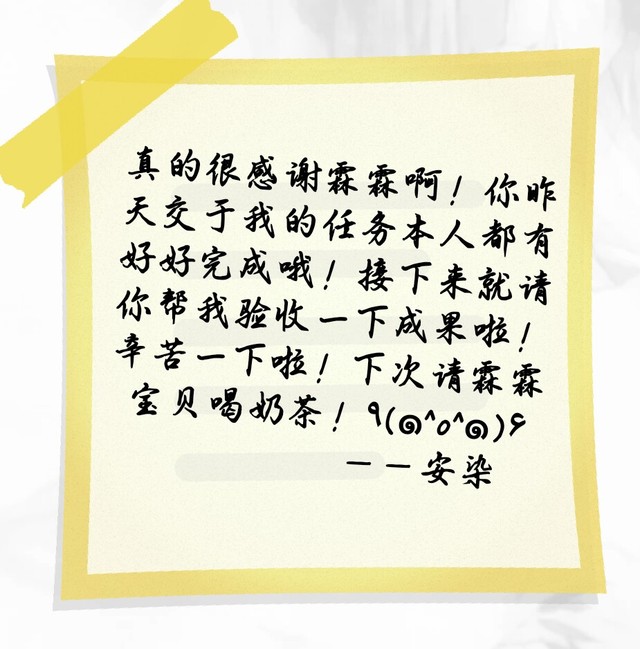 真的很感谢霖霖啊！你昨
天交于我的任务本人都有
好好完成哦！接下来就请
你帮我验收一下成果啦！
辛苦一下啦！下次请霖霖
宝贝喝奶茶！٩(๑^o^๑)۶
——安染